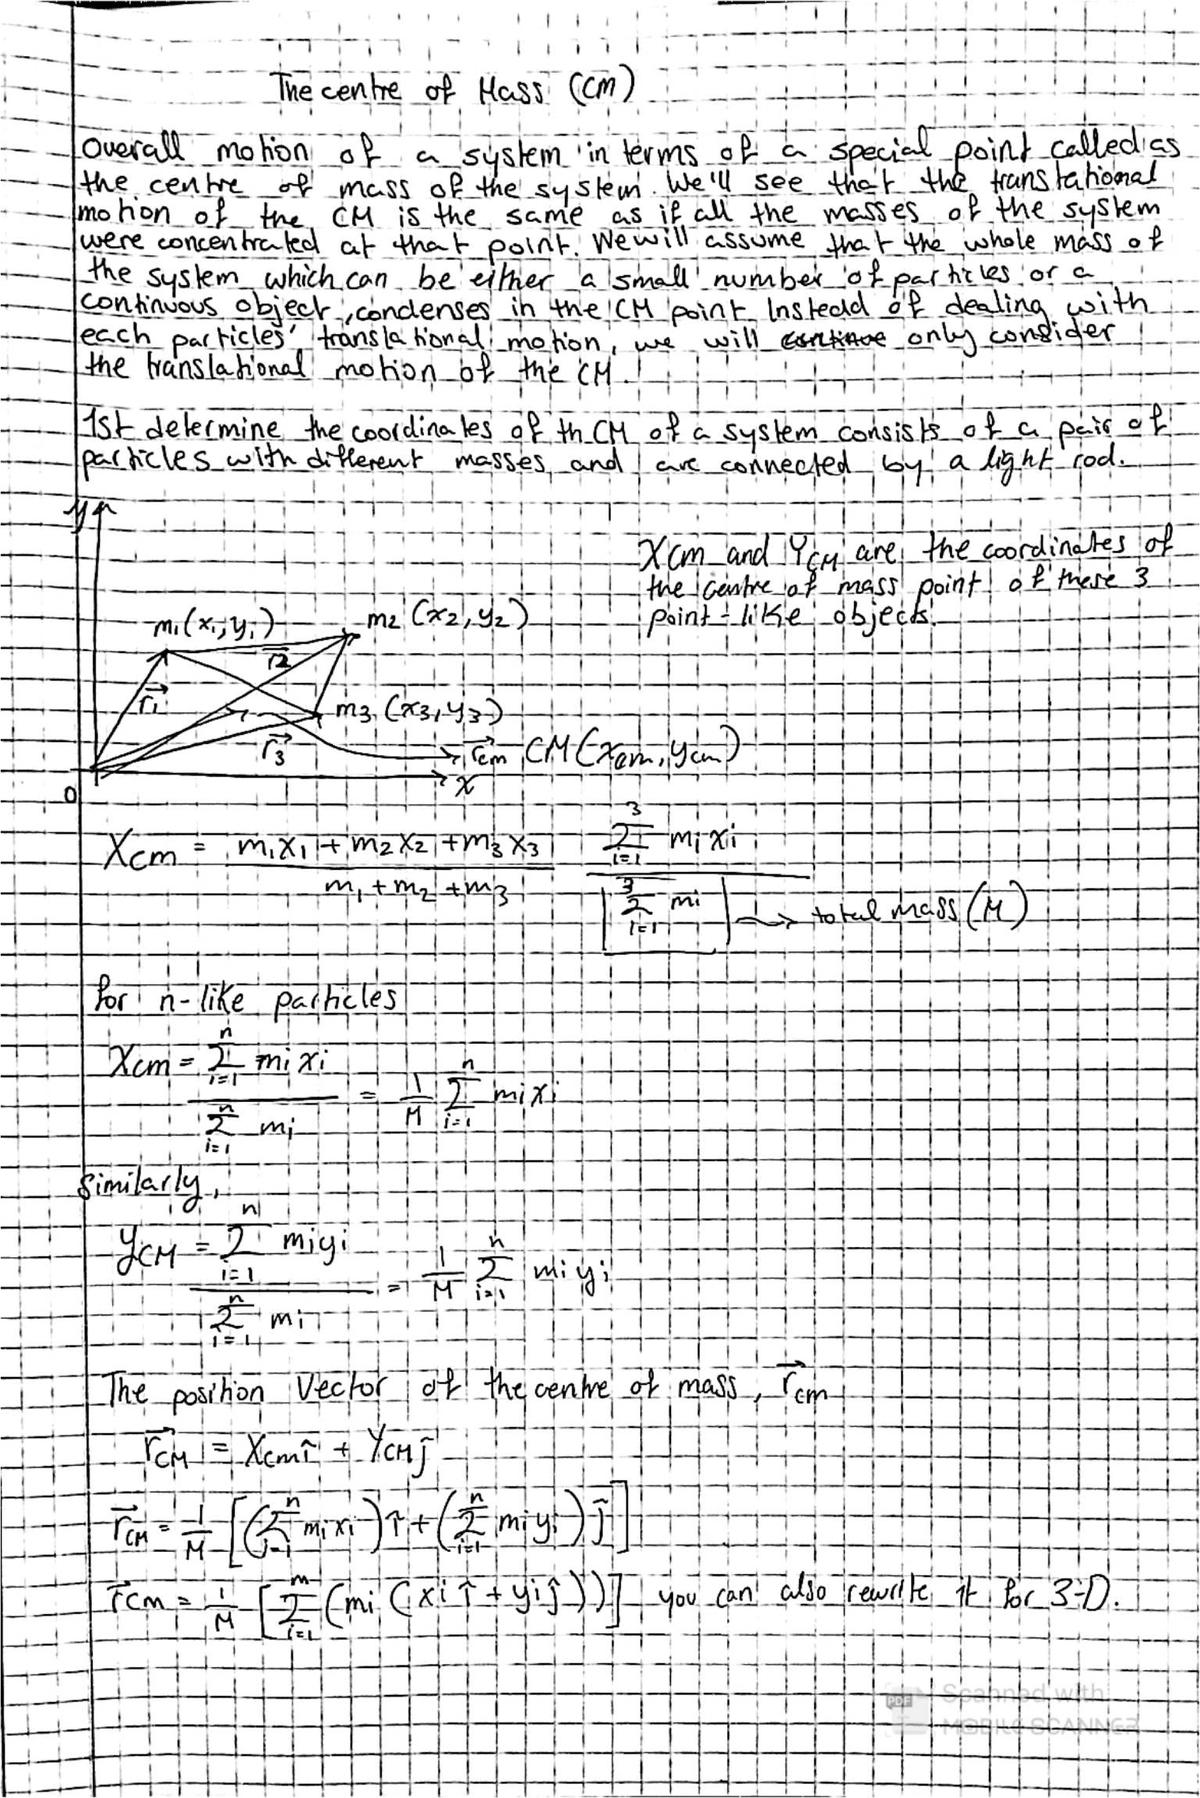 The centre of Mass (CM)
Overall motion of a system in terms of a special point called as
the centre of mass of the system. We'll see that the translational
motion of the CM is the same as if all the masses of the system
were concentrated at that point. We will assume that the whole mass of
the system which can be either a small number of particles or a
continuous object, condenses in the CM point. Instead of dealing with
each particles' translational motion, we will continue only consider
the translational motion of the CM.
1st determine the coordinates of th CM of a system consists of a pair of
particles with different masses and are connected by a light rod.
y
Xcm and YCM are the coordinates of
the centre of mass point of these 3
point-like objects.
m1(x1,y1) m2 (x2,y2)
r⃗2
r⃗1 m3 (x3,y3)
r⃗3 → r⃗cm CM(xcm, ycm)
0 x
Xcm = (m1x1 + m2x2 + m3x3)/(m1 + m2 + m3) (3Σi=1 mixi)/(3Σi=1 mi) → total mass (M)
for n-like particles
Xcm = (nΣi=1 mixi)/(nΣi=1 mi) = 1/M nΣi=1 mixi
Similarly,
yCM = (nΣi=1 miyi)/(nΣi=1 mi) = 1/M nΣi=1 miyi
The position Vector of the centre of mass, r⃗cm
r⃗CM = Xcm î + YCM ĵ
r⃗CM = 1/M [(nΣi=1 mixi) î + (nΣi=1 miyi) ĵ]
r⃗cm = 1/M [nΣi=1 (mi (xi î + yi ĵ))] you can also rewrite it for 3-D.
PDF Scanned with
MOBILE SCANNER